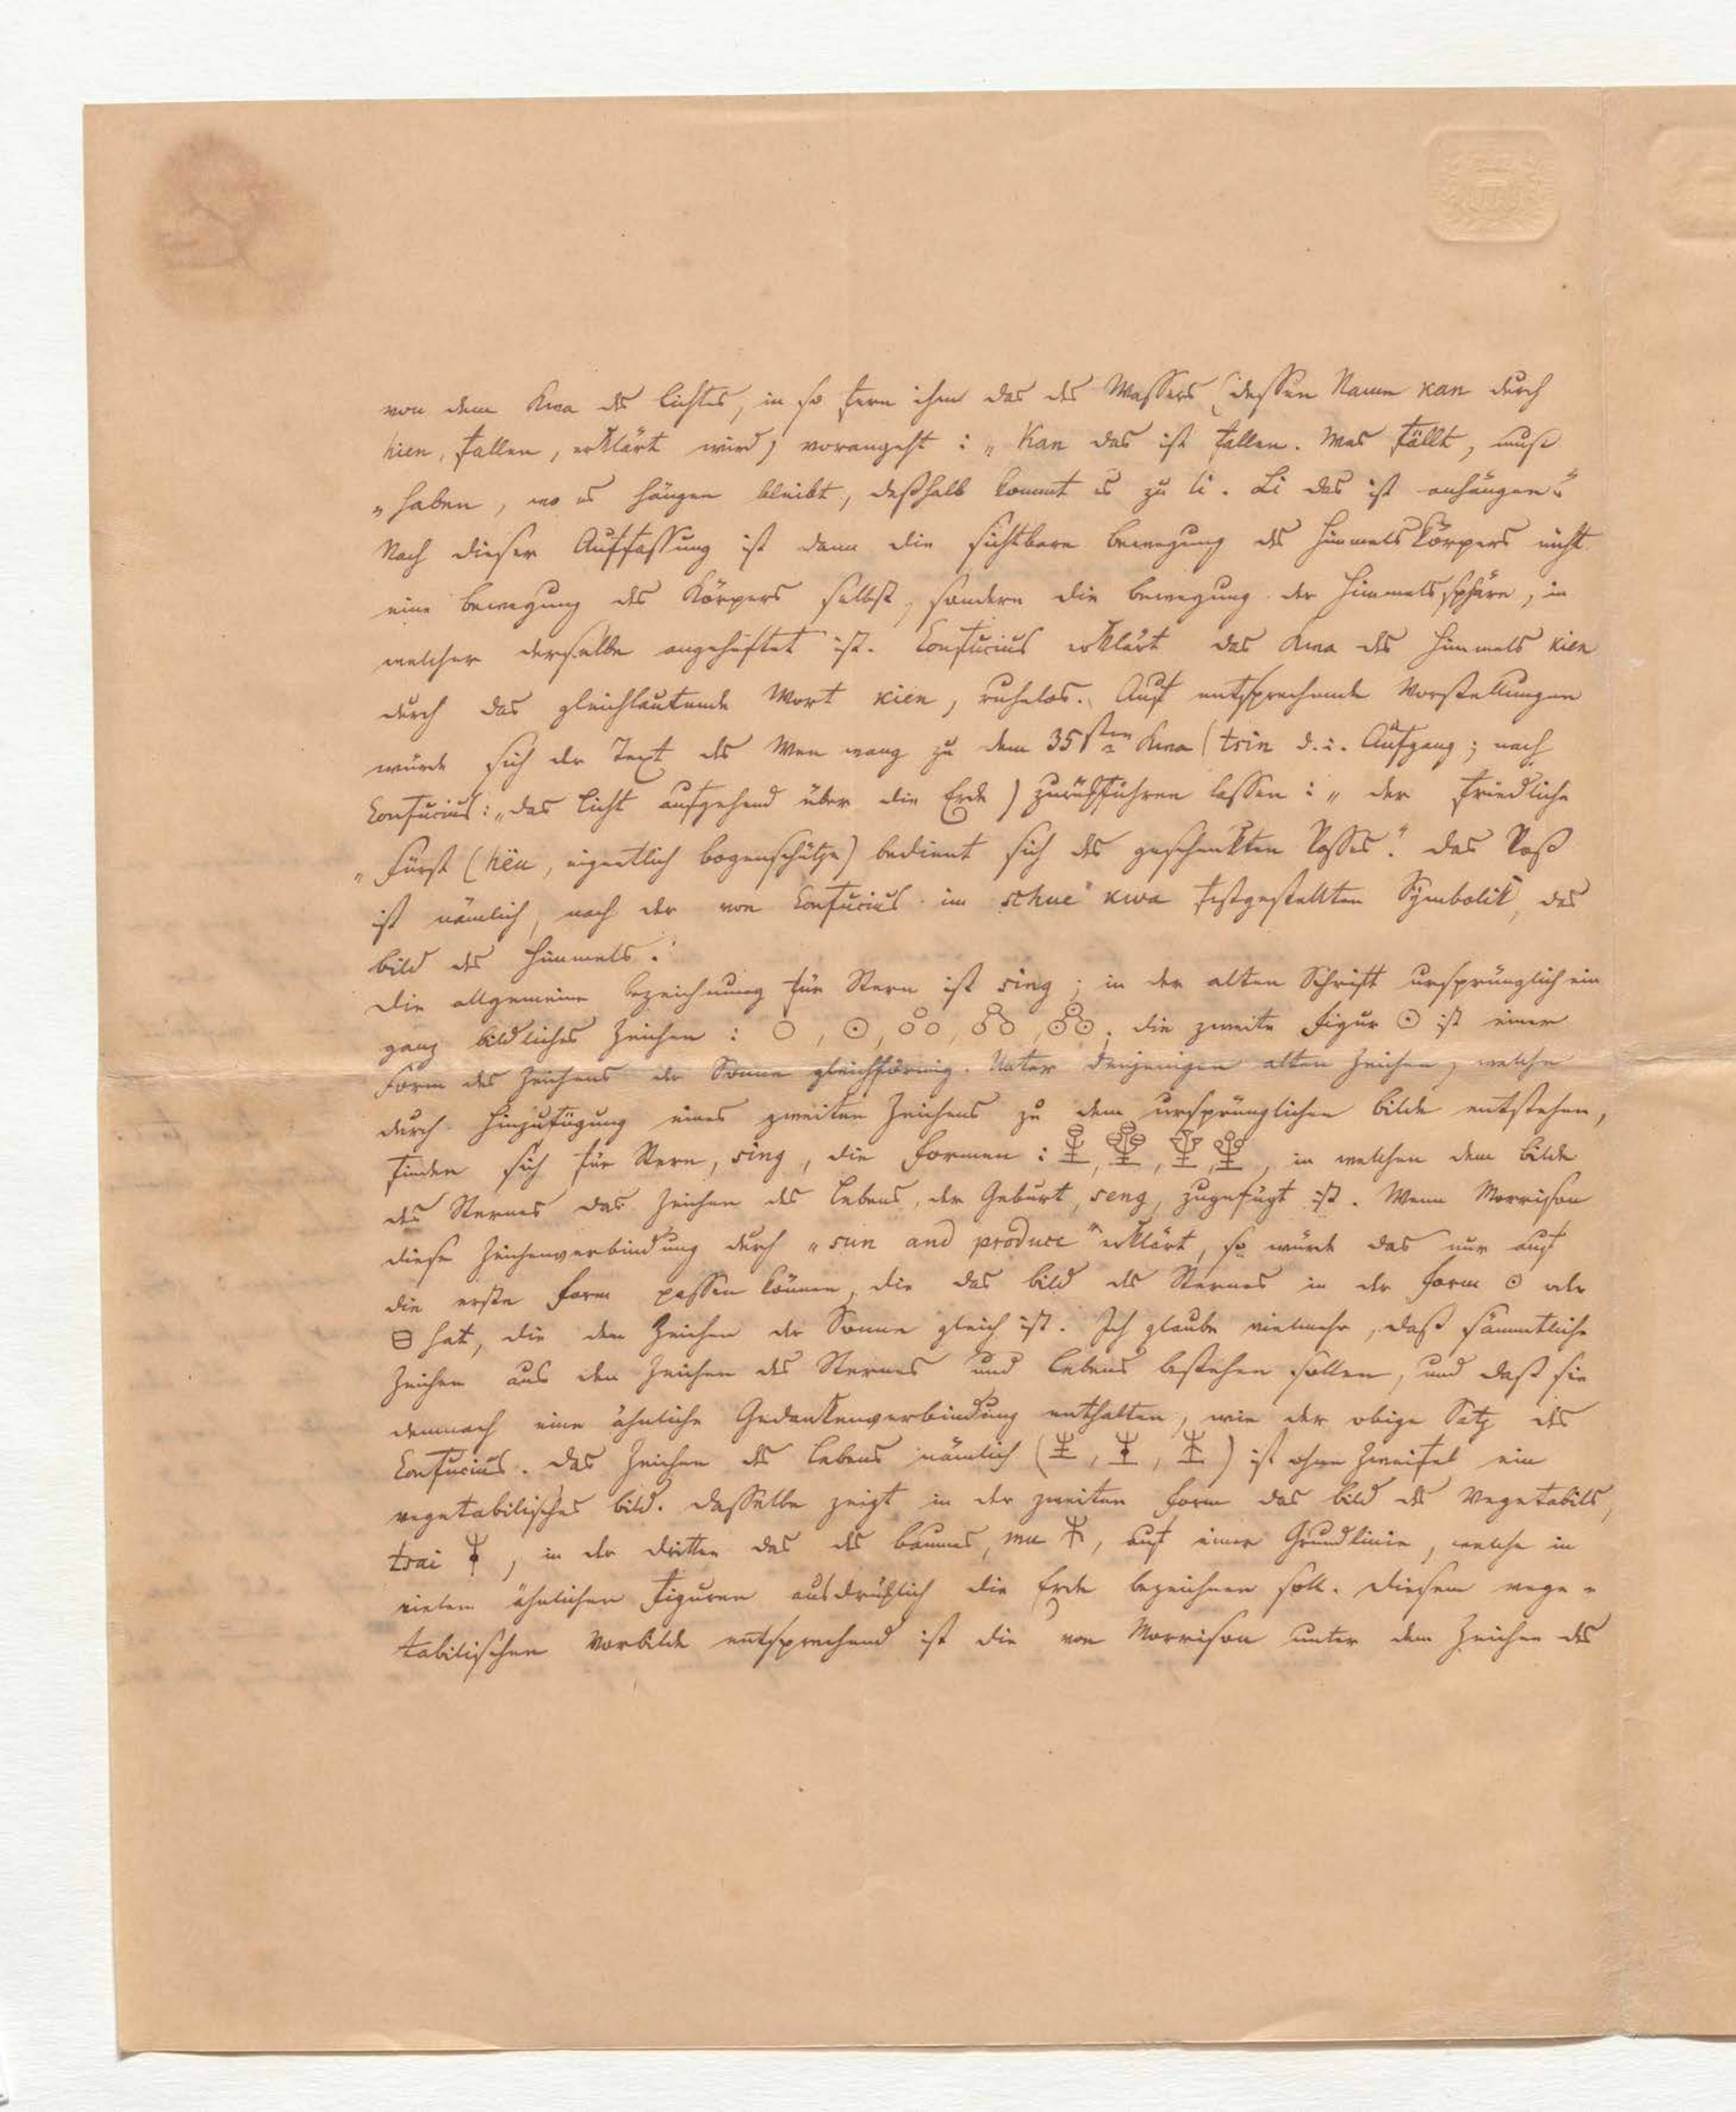 von dem Kwa des Lichtes, in so fern ihm das des Wassers (dessen Name kan durch
hien, fallen, erklärt wird) vorangeht: „Kan das ist fallen. Was fällt, muß
„haben, wo es hängen bleibt, deßhalb kommt es zu li. Li das ist anhängen."
Nach dieser Auffassung ist dann die sichtbare Bewegung des Himmelskörpers nicht
eine Bewegung des Körpers selbst, sondern die Bewegung der Himmelssphäre, in
welcher derselbe angeheftet ist. Confucius erklärt das Kwa des Himmels kien
durch das gleichlautende Wort kien, ruhelos. Auf entsprechende Vorstellungen
würde sich der Text des Wen wang zu dem 35sten Kwa (tsin d.i. Aufgang; nach
Confucius: „das Licht aufgehend über die Erde) zurückführen lassen: „der friedliche
„Fürst (hëu, eigentlich Bogenschütze) bedient sich des geschenkten Rosses." Das Roß
ist nämlich, nach der von Confucius im schue kwa festgestellten Symbolik, das
Bild des Himmels.
Die allgemeine Bezeichnung für Stern ist sing; in der alten Schrift ursprünglich ein
ganz bildliches Zeichen: ○, ⊙, die zweite Figur ⊙ ist einer
Form des Zeichens der Sonne gleichförmig. Unter denjenigen alten Zeichen, welche
durch Hinzufügung eines zweiten Zeichens zu dem ursprünglichen Bilde entstehen,
finden sich für Stern, sing, die Formen: in welchen dem Bilde
des Sternes das Zeichen des Lebens, der Geburt, seng, zugefügt ist. Wenn Morrison
diese Zeichenverbindung durch „sun and produce" erklärt, so würde das nur auf
die erste Form passen können, die das Bild des Sternes in der Form ⊙ oder
⊖ hat, die dem Zeichen der Sonne gleich ist. Ich glaube vielmehr, daß sämmtliche
Zeichen aus den Zeichen des Sternes und Lebens bestehen sollen, und daß sie
demnach eine ähnliche Gedankenverbindung enthalten, wie der obige Satz des
Confucius. Das Zeichen des Lebens nämlich ( , , ) ist ohne Zweifel ein
vegetabilisches Bild. Dasselbe zeigt in der zweiten Form das Bild des Vegetabils,
tsai , in der dritten das des Baumes, mu , auf einer Grundlinie, welche in
vielen ähnlichen Figuren ausdrücklich die Erde bezeichnen soll. Diesem vege=
tabilischen Vorbilde entsprechend ist die von Morrison unter dem Zeichen des